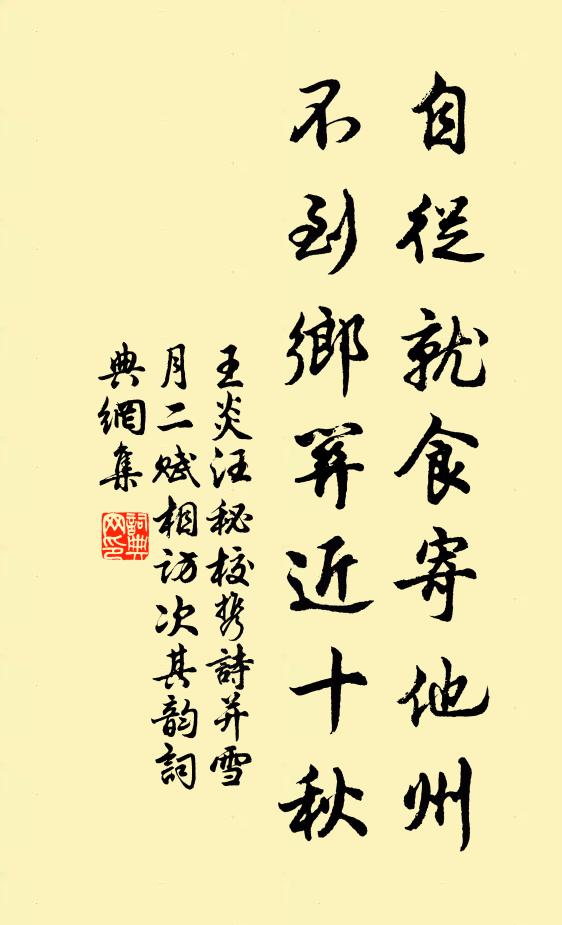 自從就食寄他州
不到鄉關近十秋
王炎汪秘校攜詩并雪
月二賦相訪次其韵詞
典網集
詞典网印